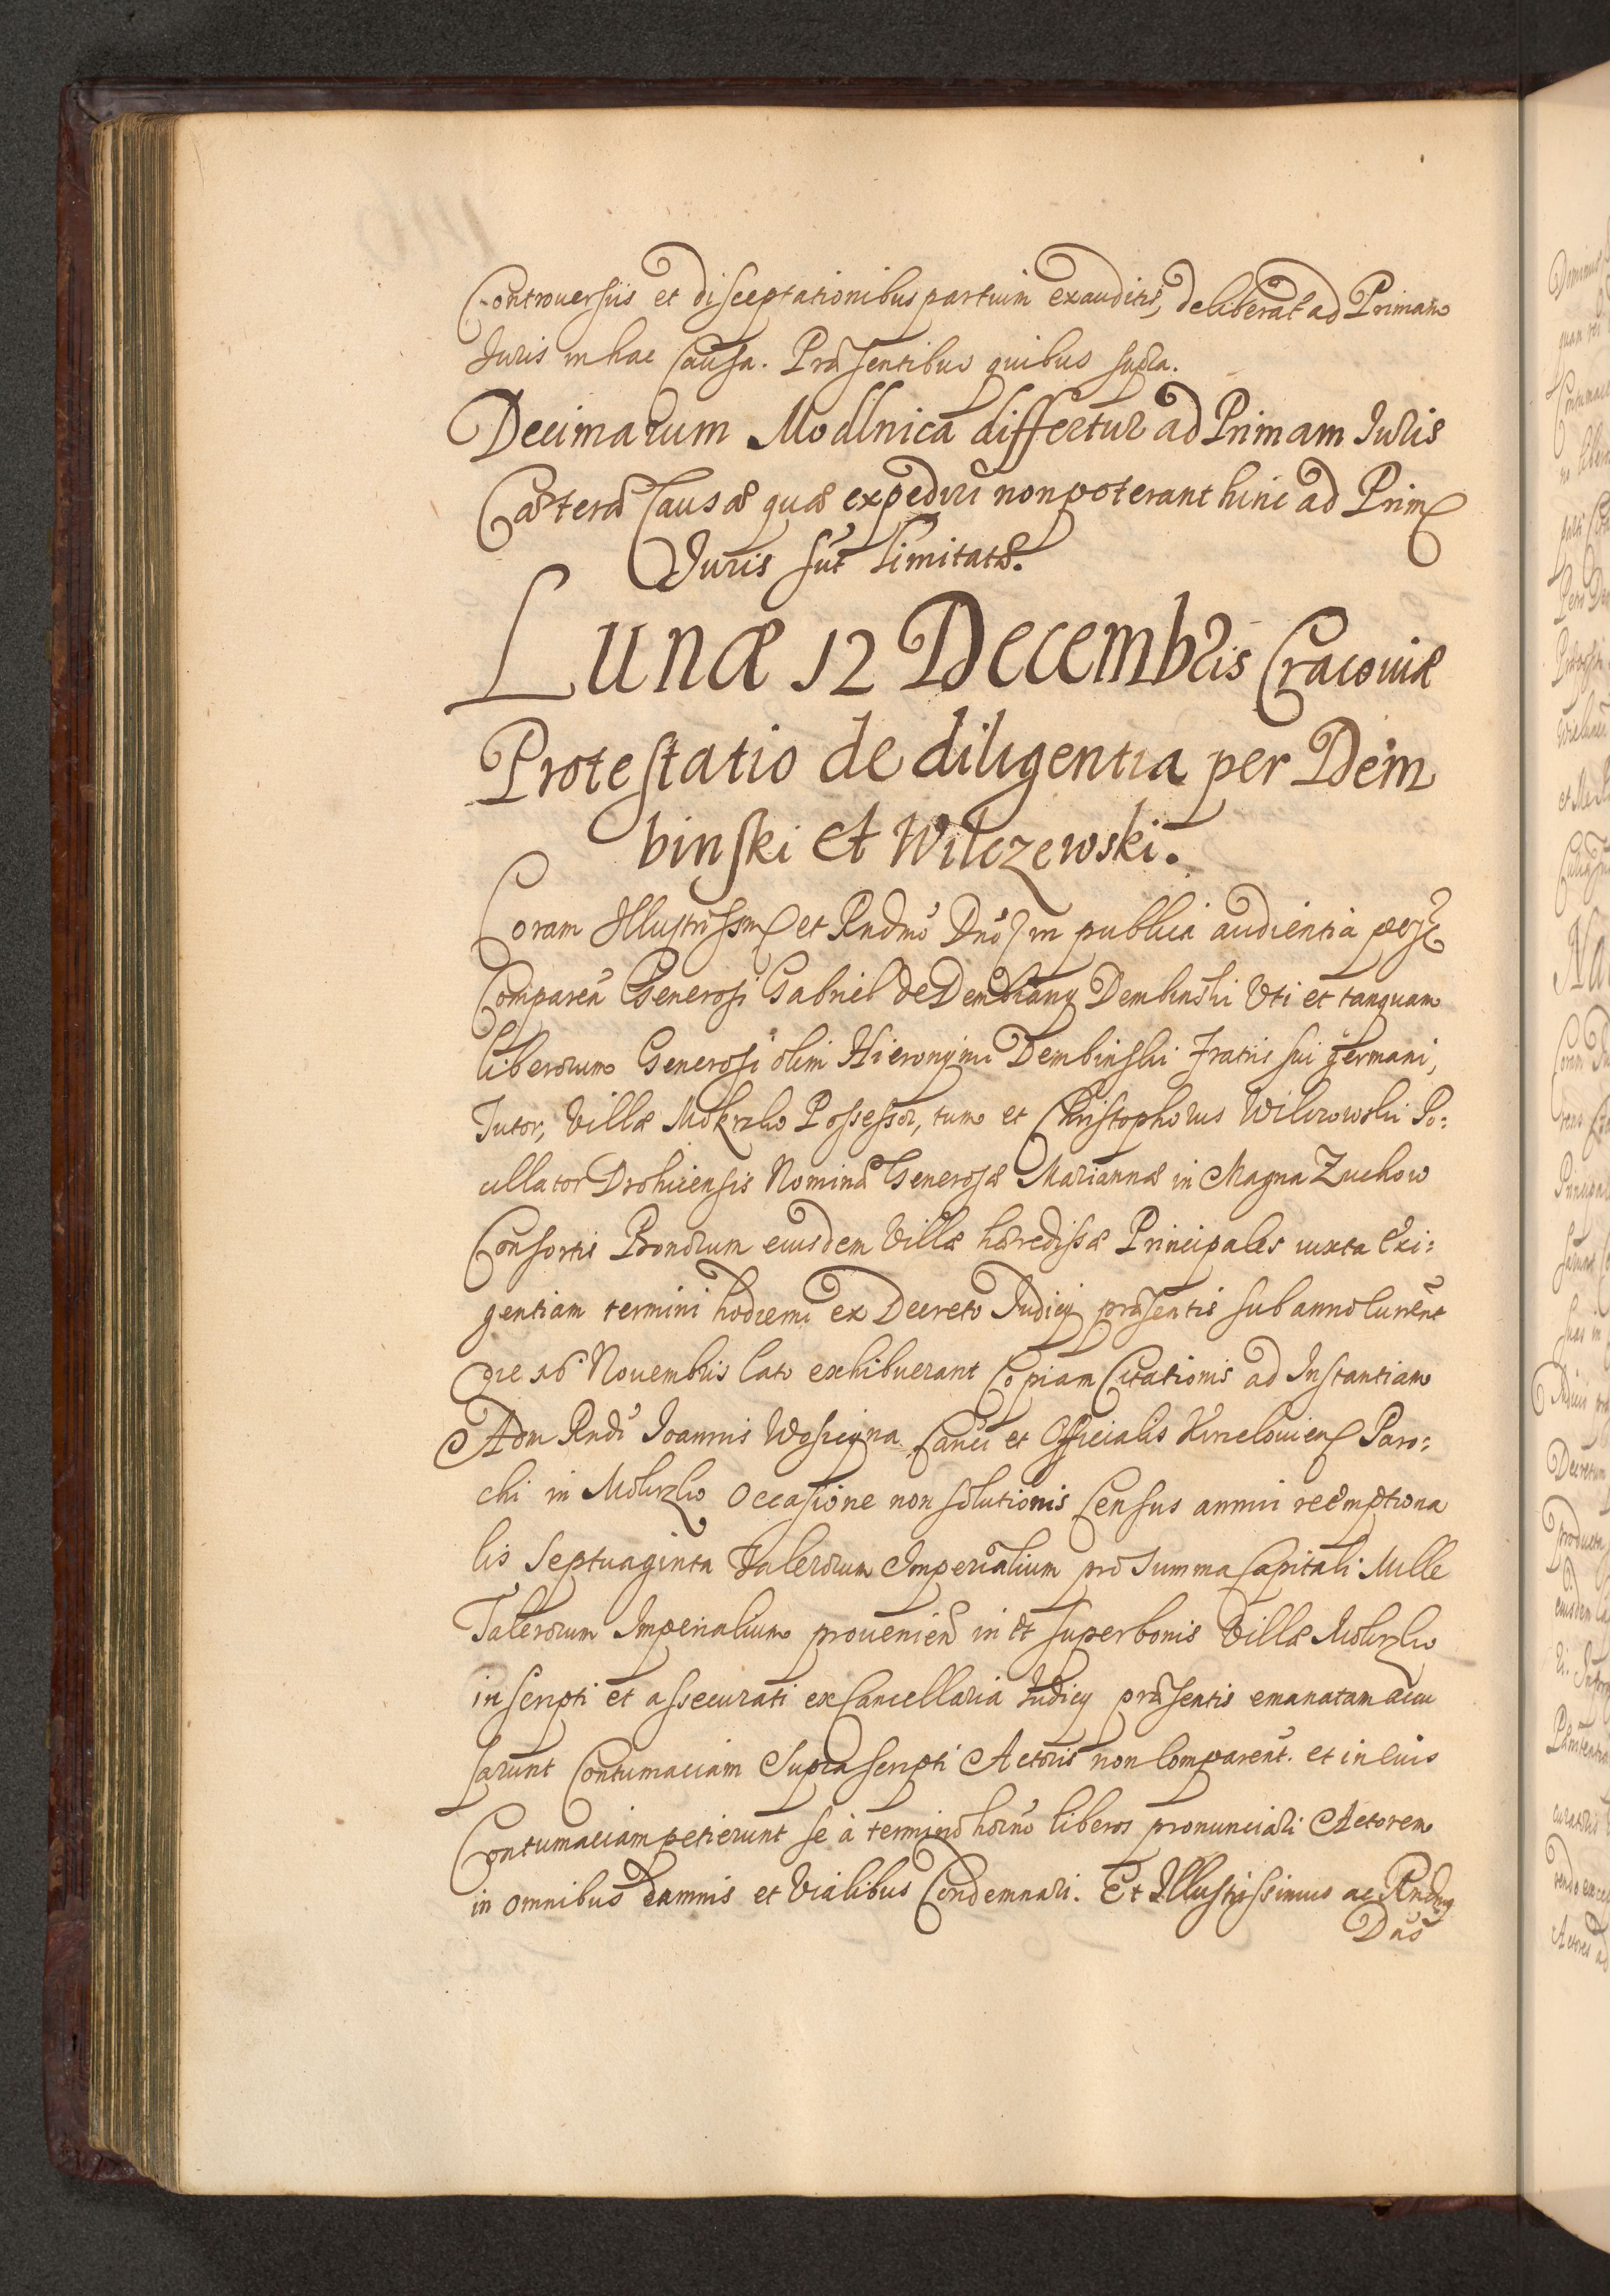 Controuersiis et disceptationibus partium exauditis, deliberat ad Primam
Iuris in hac Causa. Præsentibus quibus supra.
Decimarum Modlnica differtur ad Primam Iuris
Cæteræ Causæ quæ expediri non poterant hinc ad Prim
Iuris sūt limitatæ.
Lunæ 12 Decembris Cracouiæ
Protestatio de diligentia per Dem
binski et Wilczewski.
Coram Illustrissm et Rndmo Dno in publica audientia
Comparen Generosi Gabriel de Dembiany Dembinski Vti et tanquam
liberorum Generosi olim Hieronymi Dembinski Fratris sui germani,
Tutor, Villæ Mokrzko Possessor, tum et Christophorus Wilczowski Po:
cillator Drohicensis Nomine Generosæ Mariannæ in Magna Zuchow
Consortis Bonorum eiusdem Villæ hæredissæ Principales iuxta Exi:
gentiam termini hodierni ex Decreto Iudicij præsentis sub anno Curent
Die 16 Nouembris lato exhibuerant Copiam Citationis ad Instantiam
Adm Rndi Ioannis Wosicyna Canci et Officialis Kurzelouien Paro:
chi in Mokrzko Occasione non solutionis Census annui reemptiona
lis Septuaginta Talerorum Imperialium pro Summa Capitali Mille
Talerorum Imperialium prouenien in et super bonis Villæ Mokrzko
inscripti et assecurati ex Cancellaria Iudicij præsentis emanatam accu
sarunt Contumaciam Suprascripti Actoris non Comparent. et in Cuis
Contumaciam petierunt se à termino horno liberos pronunciari Actorem
in omnibus damnis et Vialibus Condemnari. Et Illustrissimus ac Rndmg
Dns